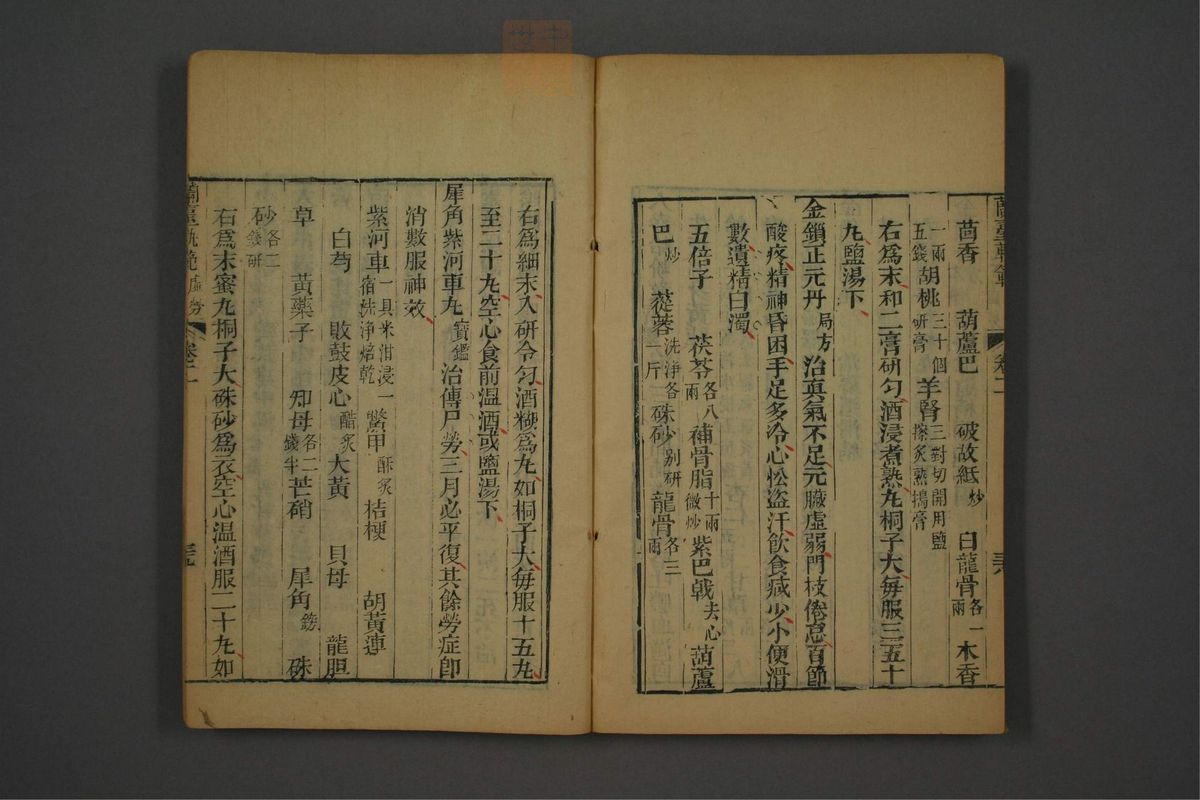 茴香　葫蘆巴　破故紙炒　白龍骨各一兩　木香
一兩五錢　胡桃三十個研膏　羊腎三對切開用鹽擦炙熟搗膏
右爲末和二膏研勻酒浸煮熟丸桐子大每服三五十
丸鹽湯下
金鎖正元丹局方治眞氣不足元臟虛弱門枝倦怠百節
酸疼精神昏困手足多冷心忪盜汗飲食減少小便滑
數遺精白濁
五倍子　茯苓各八兩　補骨脂十兩微炒　紫巴戟去心　葫蘆
巴炒　蓯蓉洗淨各一斤　硃砂別研　龍骨各三兩
卷二
右爲細末入研令勻酒糊爲丸如桐子大每服十五丸
至二十丸空心食前溫酒或鹽湯下
犀角紫河車丸寶鑑治傳尸勞三月必平復其餘勞症卽
消數服神效
紫河車一具米泔浸一宿洗淨焙乾　鱉甲酥炙　桔梗　胡黃連
白芍　敗鼓皮心醋炙　大黃　貝母　龍胆
草　黃藥子　知母各二錢半　芒硝　犀角錢　硃
砂各二錢研
右爲末蜜丸桐子大硃砂爲衣空心溫酒服二十丸如